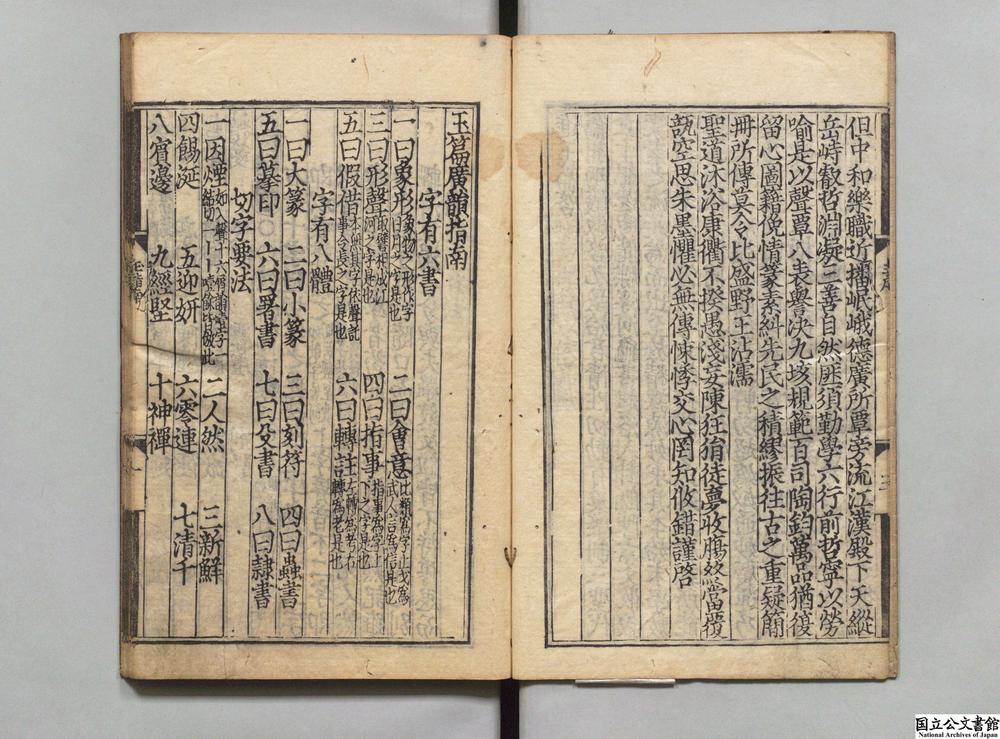 但中和樂職近播岷峨德廣所覃旁流江漢殿下天縱
岳峙叡哲淵凝三善自然匪須勤學六行前哲寧以勞
喻是以聲覃八表譽決九垓規範百司陶鈞萬品猶復
留心圖籍俛情篆素糾先民之積繆振往古之重疑簡
冊所傳莫令比盛野王沾濡
聖道沐浴康衢不揆愚淺妄陳狂狷徒夢收腸終當覆
瓿空思朱墨懼必無傳悚悸交心罔知攸錯謹啓
玉篇廣韻指南
字有六書
一曰象形象物之形作字日月之字是也 二曰會意比類爲字止戈爲武人言爲信是也
三曰形聲取聲相成江河之字是也 四曰指事指事爲字上下之字是也
五曰假借本無其字依聲託事令長之字是也 六曰轉注左轉爲考右轉爲老是也
字有八體
一曰大篆 二曰小篆 三曰刻符 四曰蟲書
五曰摹印 六曰署書 七曰殳書 八曰隷書
切字要法
一因煙 二人然 三新鮮
四餳涎 五迎妍 六零連 七清千
八賓邊 九經堅 十神禪
国立公文書館
National Archives of Japan